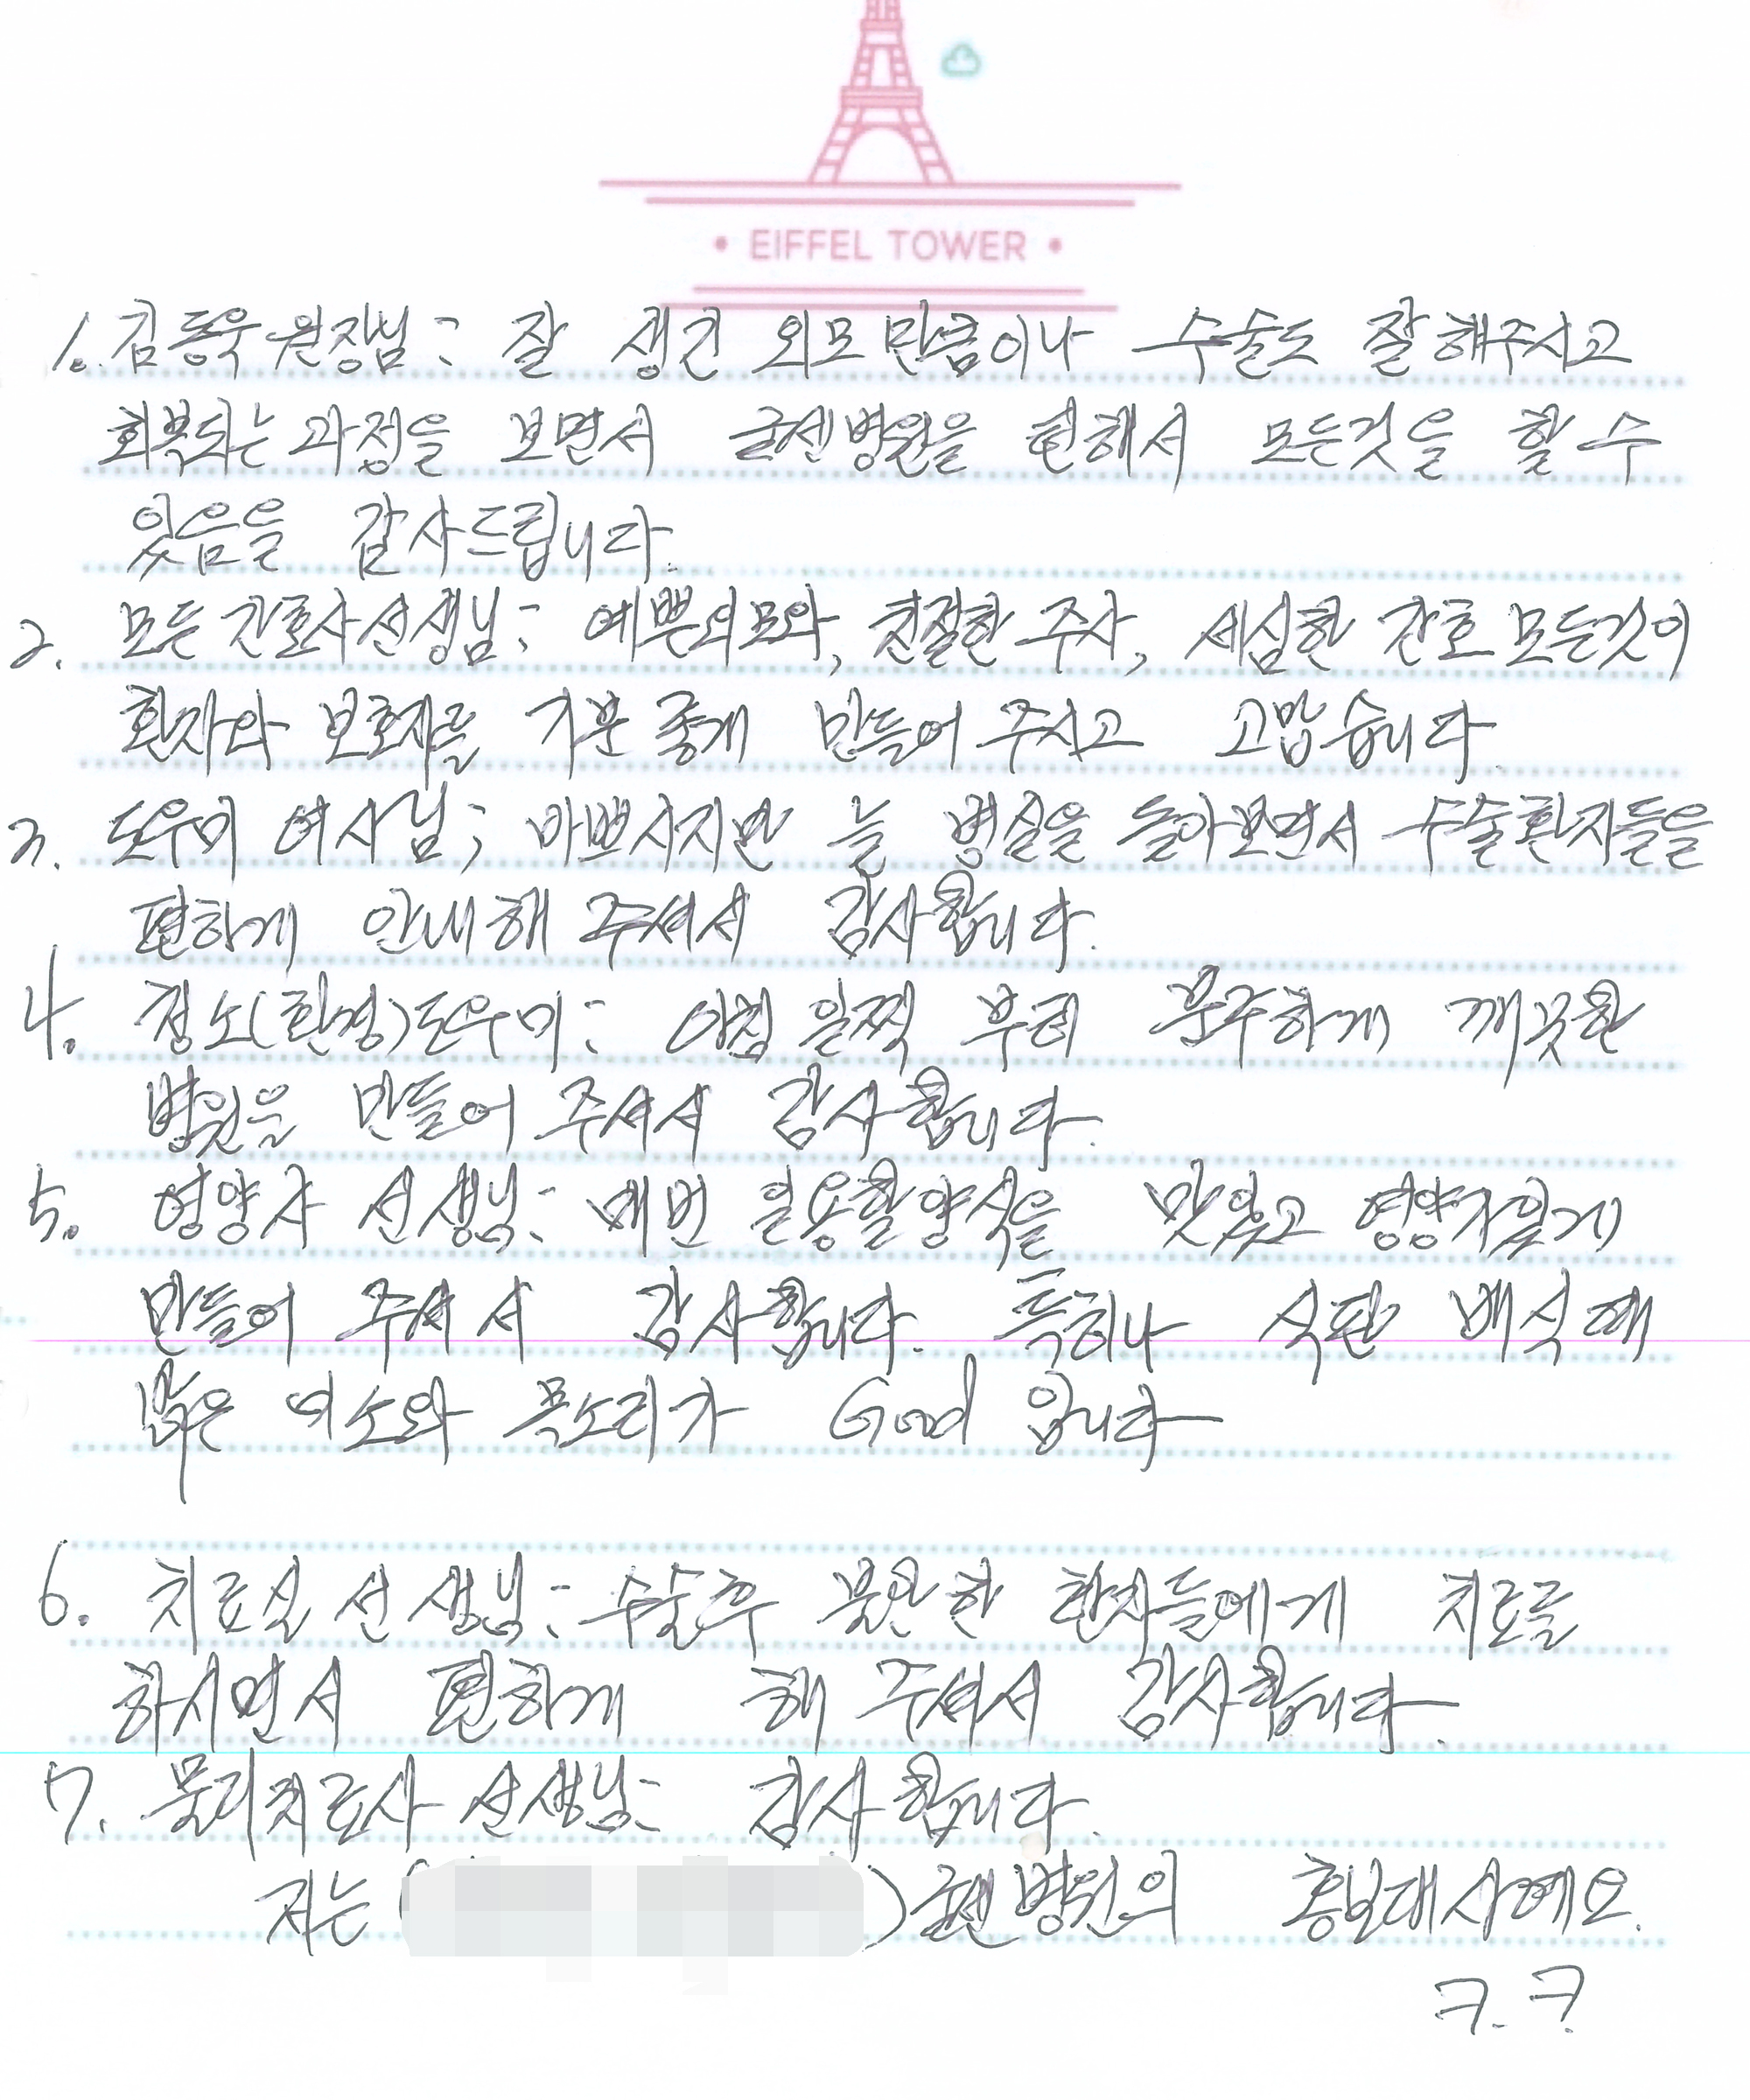 • EIFFEL TOWER •
1. 김동욱 원장님: 잘 생긴 외모 만큼이나 수술도 잘 해주시고
회복되는 과정을 보면서 굿센병원을 통해서 모든것을 할 수
있음을 감사드립니다.
2. 모든 간호사선생님: 예쁜외모와, 친절한 주사, 세심한 간호 모든것이
환자와 보호자를 기분 좋게 만들어 주시고 고맙습니다.
3. 도우미 여사님; 바쁘시지만 늘 병실을 돌아보면서 수술환자들을
편하게 안내해 주셔서 감사합니다.
4. 청소(환경)도우미: 아침 일찍 부터 분주하게 깨끗한
병원을 만들어 주셔서 감사합니다.
5. 영양사 선생님: 매번 일용할양식을 맛있고 영양가있게
만들어 주셔서 감사합니다. 특히나 식판 배식때
밝은 미소와 목소리가 Good 입니다
6. 치료실 선생님: 수술후 불안한 환자들에게 치료를
하시면서 편하게 해 주셔서 감사합니다.
7. 물리치료사 선생님: 감사합니다.
저는( ) 병원의 홍보대사예요.
ㅋ.ㅋ.